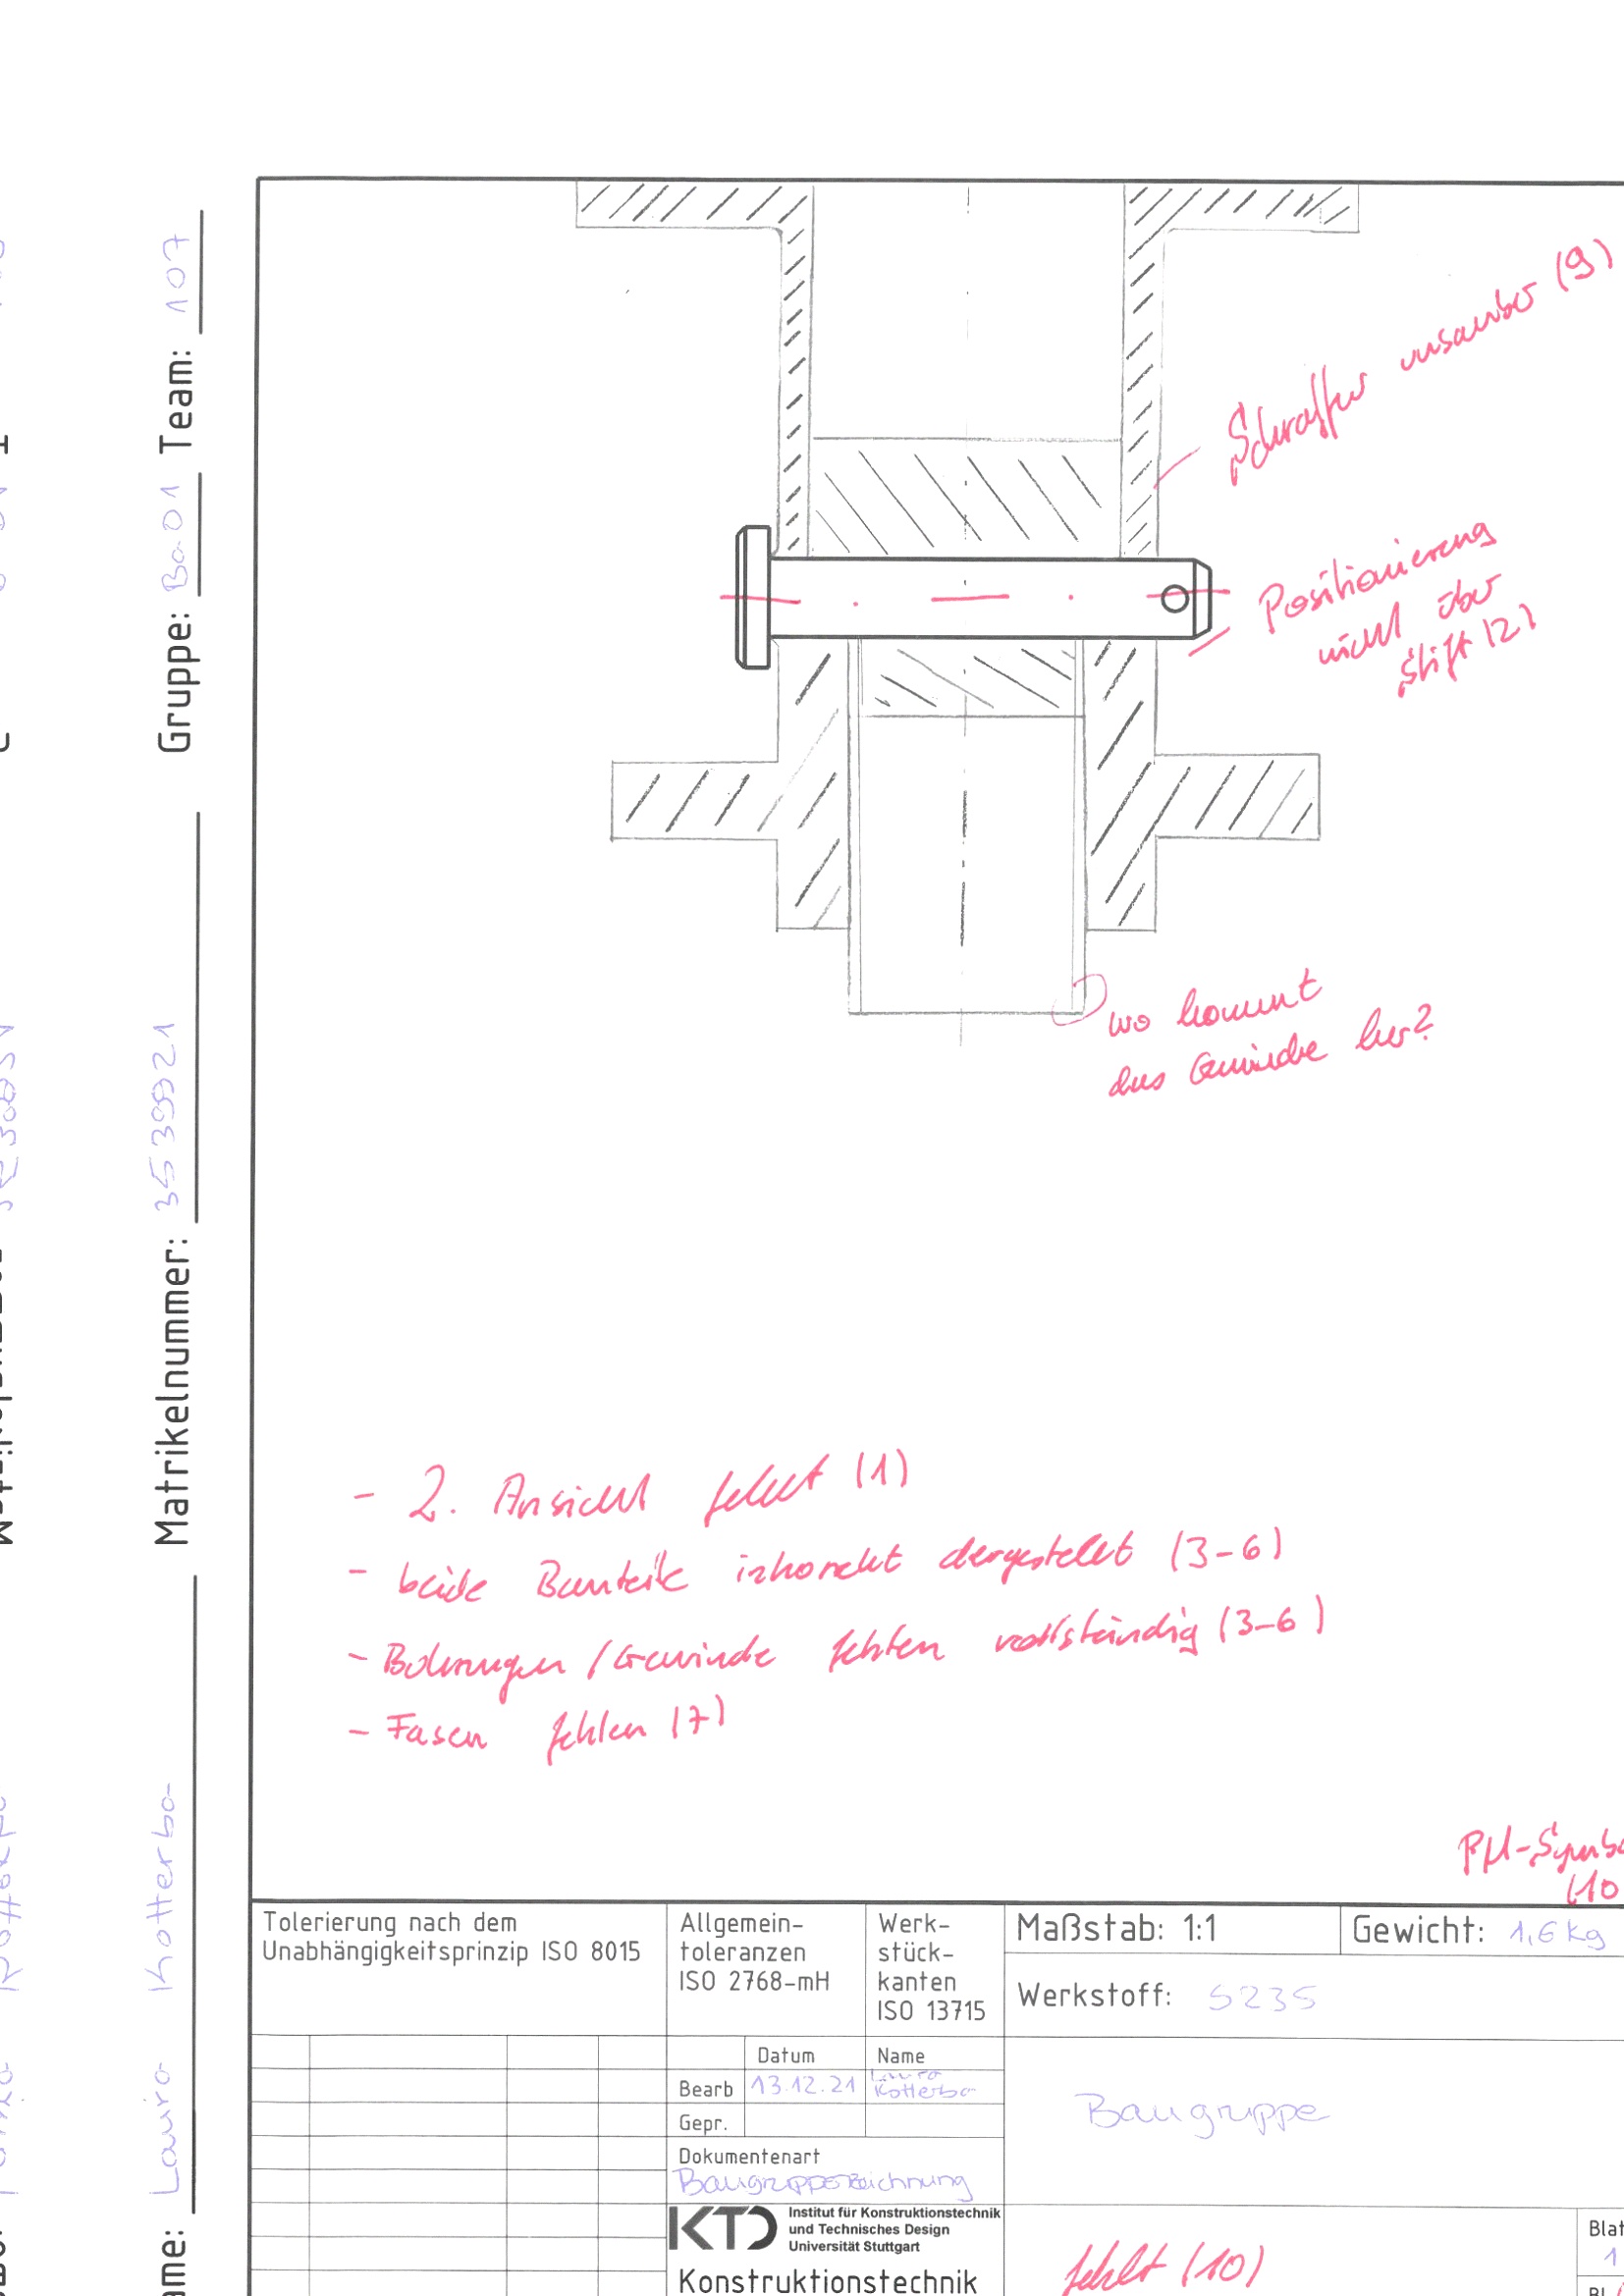 Gruppe: Ba 01 Team: 107
Matrikelnummer: 3539921
Kotterba
Schraffur unsauber (9)
Positionierung
nicht über
Stift (2)
wo kommt
das Gewinde her?
- 2. Ansicht fehlt (1)
- beide Bauteile inkorrekt dargestellt (3-6)
- Bohrungen / Gewinde fehlen vollständig (3-6)
- Fasen fehlen (7)
(10
Tolerierung nach dem
Unabhängigkeitsprinzip ISO 8015
Allgemein-
toleranzen
ISO 2768-mH
Werk-
stück-
kanten
ISO 13715
Maßstab: 1:1
Gewicht: 1,6 kg
Werkstoff: S235
Datum
Name
Bearb
13.12.21
Laura
Kotterba
Gepr.
Dokumentenart
Baugruppezeichnung
Baugruppe
KTD
Institut für Konstruktionstechnik
und Technisches Design
Universität Stuttgart
Konstruktionstechnik
fehlt (10)
Blat
1